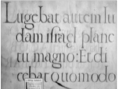 Lugebat autem Iu
dam israel planc
tu magno: Et di
cebat Quomodo